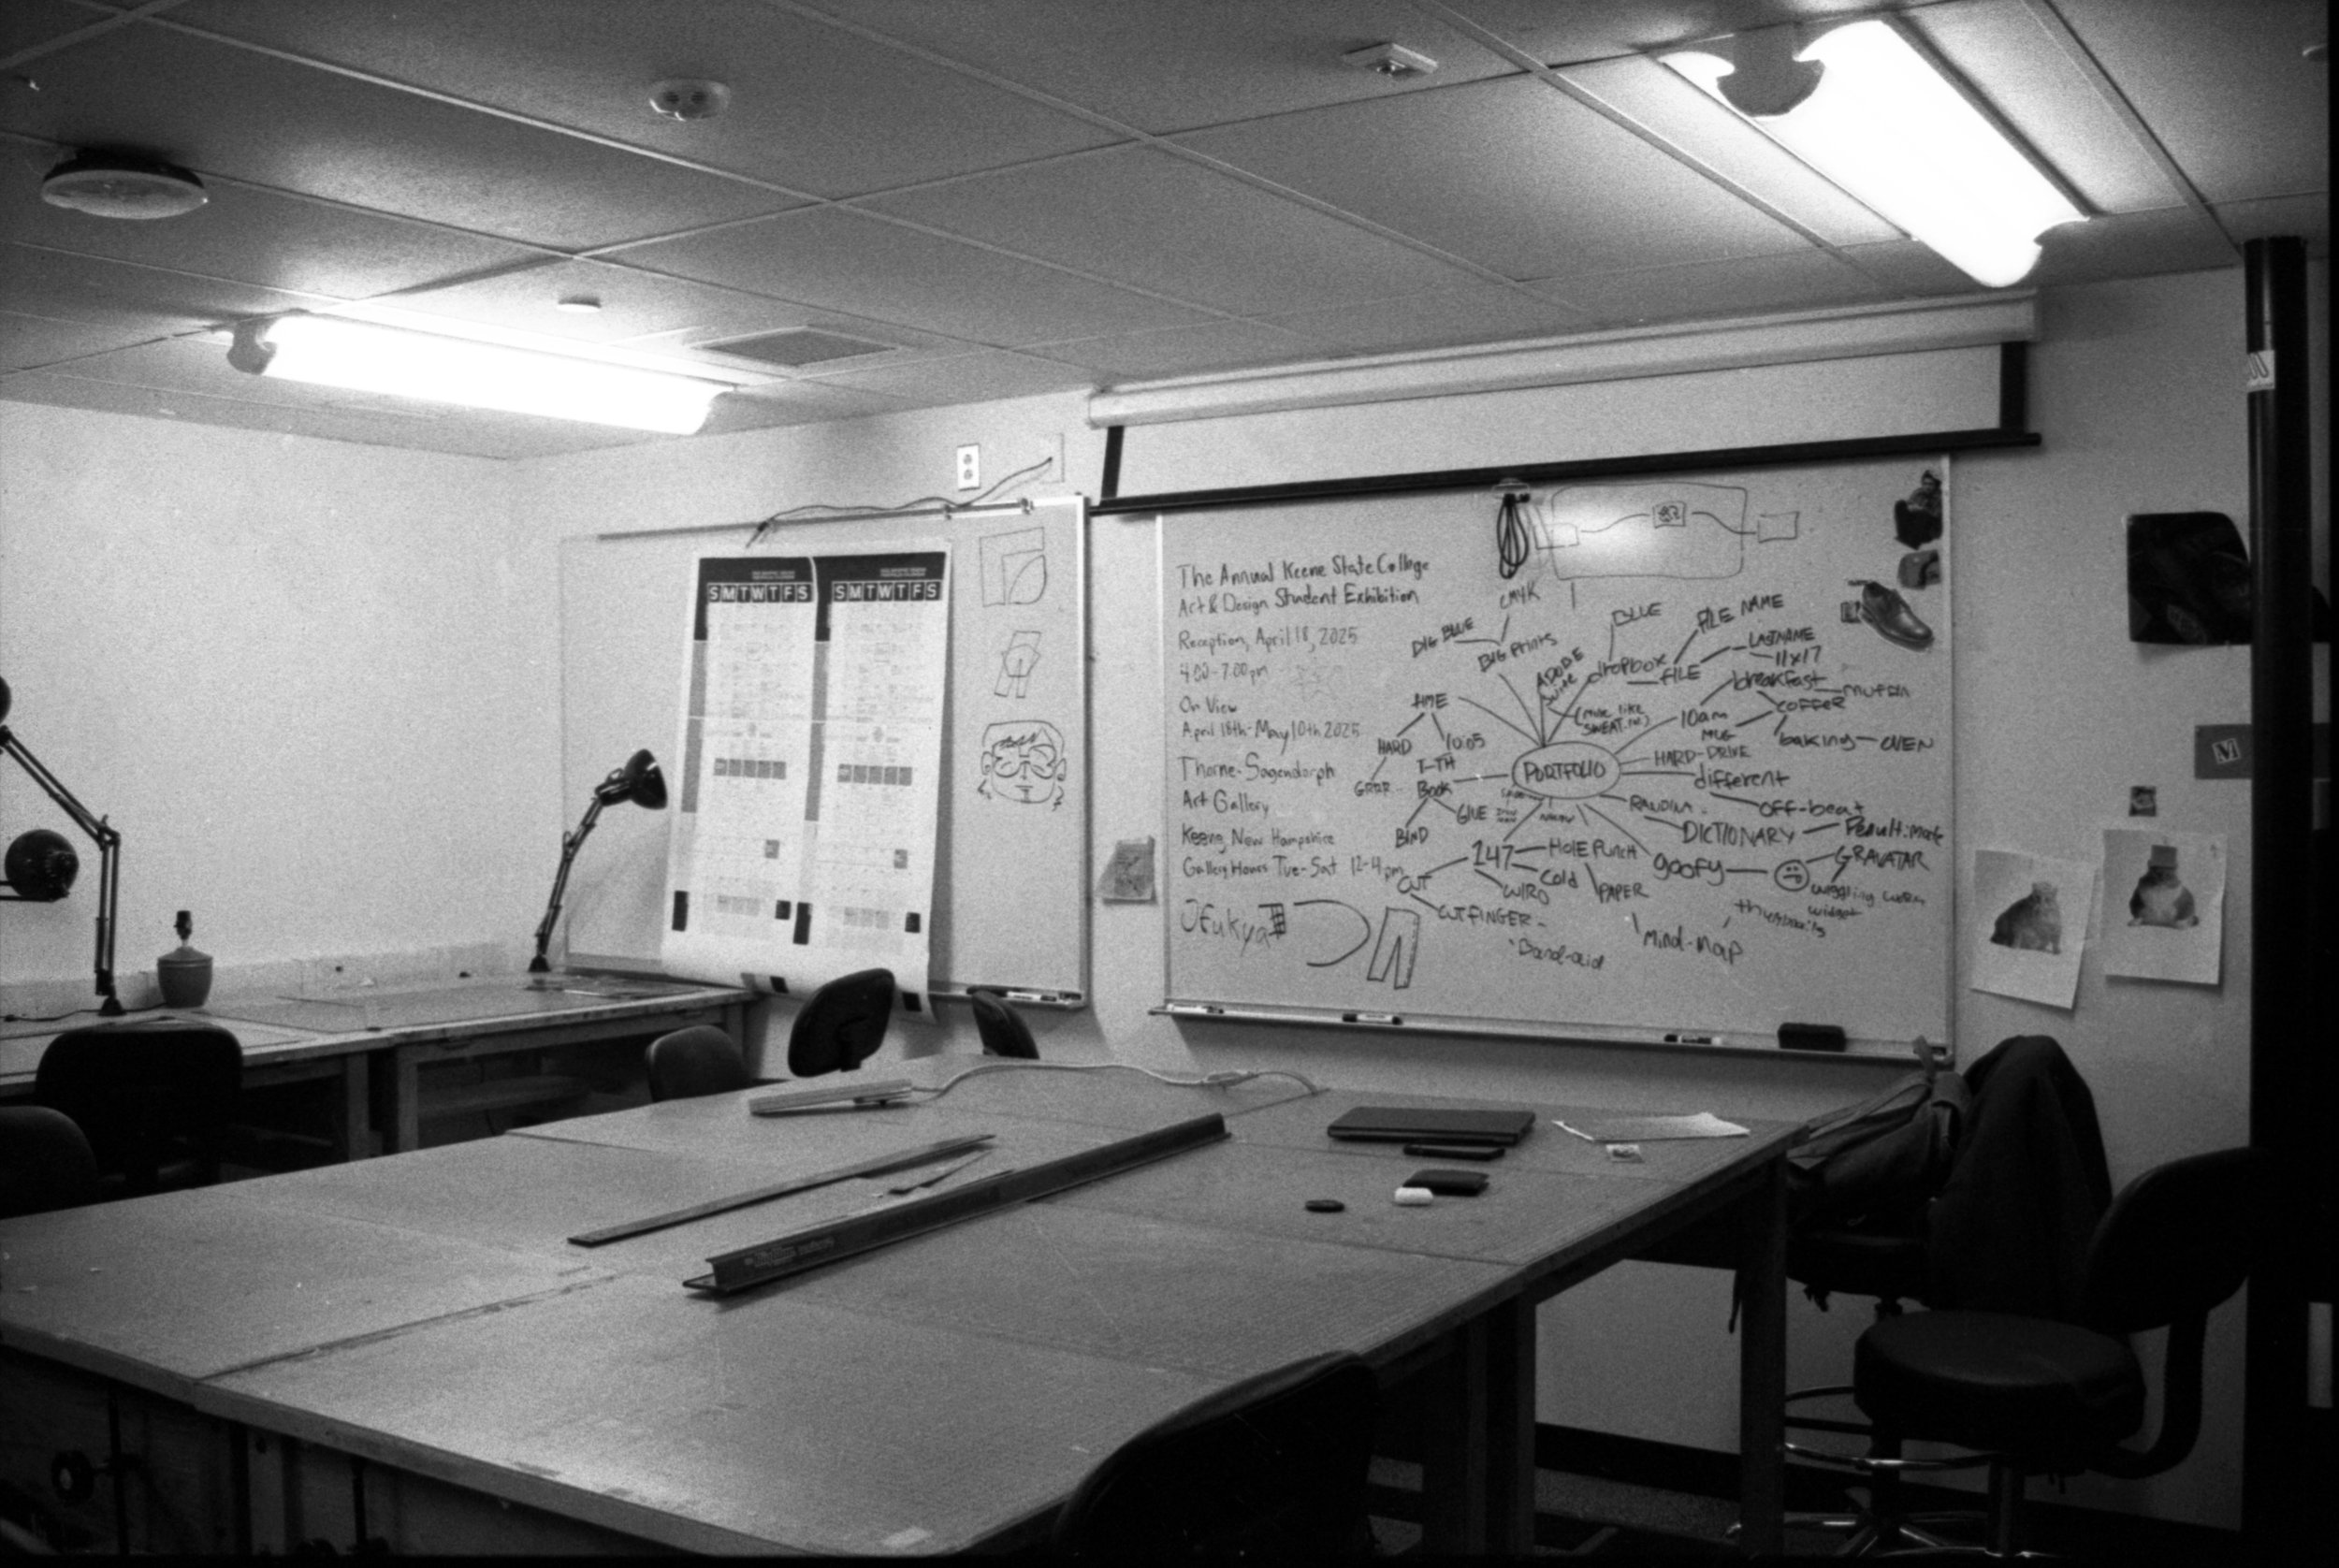 SMTWTFS SMTWTFS
The Annual Keene State College
Art & Design Student Exhibition
Reception, April 18, 2025
4:00-7:00pm
On View
April 18th-May 10th 2025
Thorne-Sagendorph
Art Gallery
Keene, New Hampshire
Gallery Hours Tue-Sat 12-4pm
CMYK
BIG BLUE
BIG Prints
ADOBE
BLUE
dropbox
FILE
FILE NAME
LASTNAME
11x17
breakfast
muffin
COFFEE
10am
MUG
baking
OVEN
HARD-DRIVE
PORTFOLIO
different
OFF-beat
DICTIONARY
TIME
HARD
10:05
T-TH
GRRR
Book
GLUE
BIND
147
HOLE PUNCH
Cold
PAPER
WIRO
CUT
CUT FINGER
Band-aid
goofy
GRAVATAR
wiggling
widget
Mind-map
M